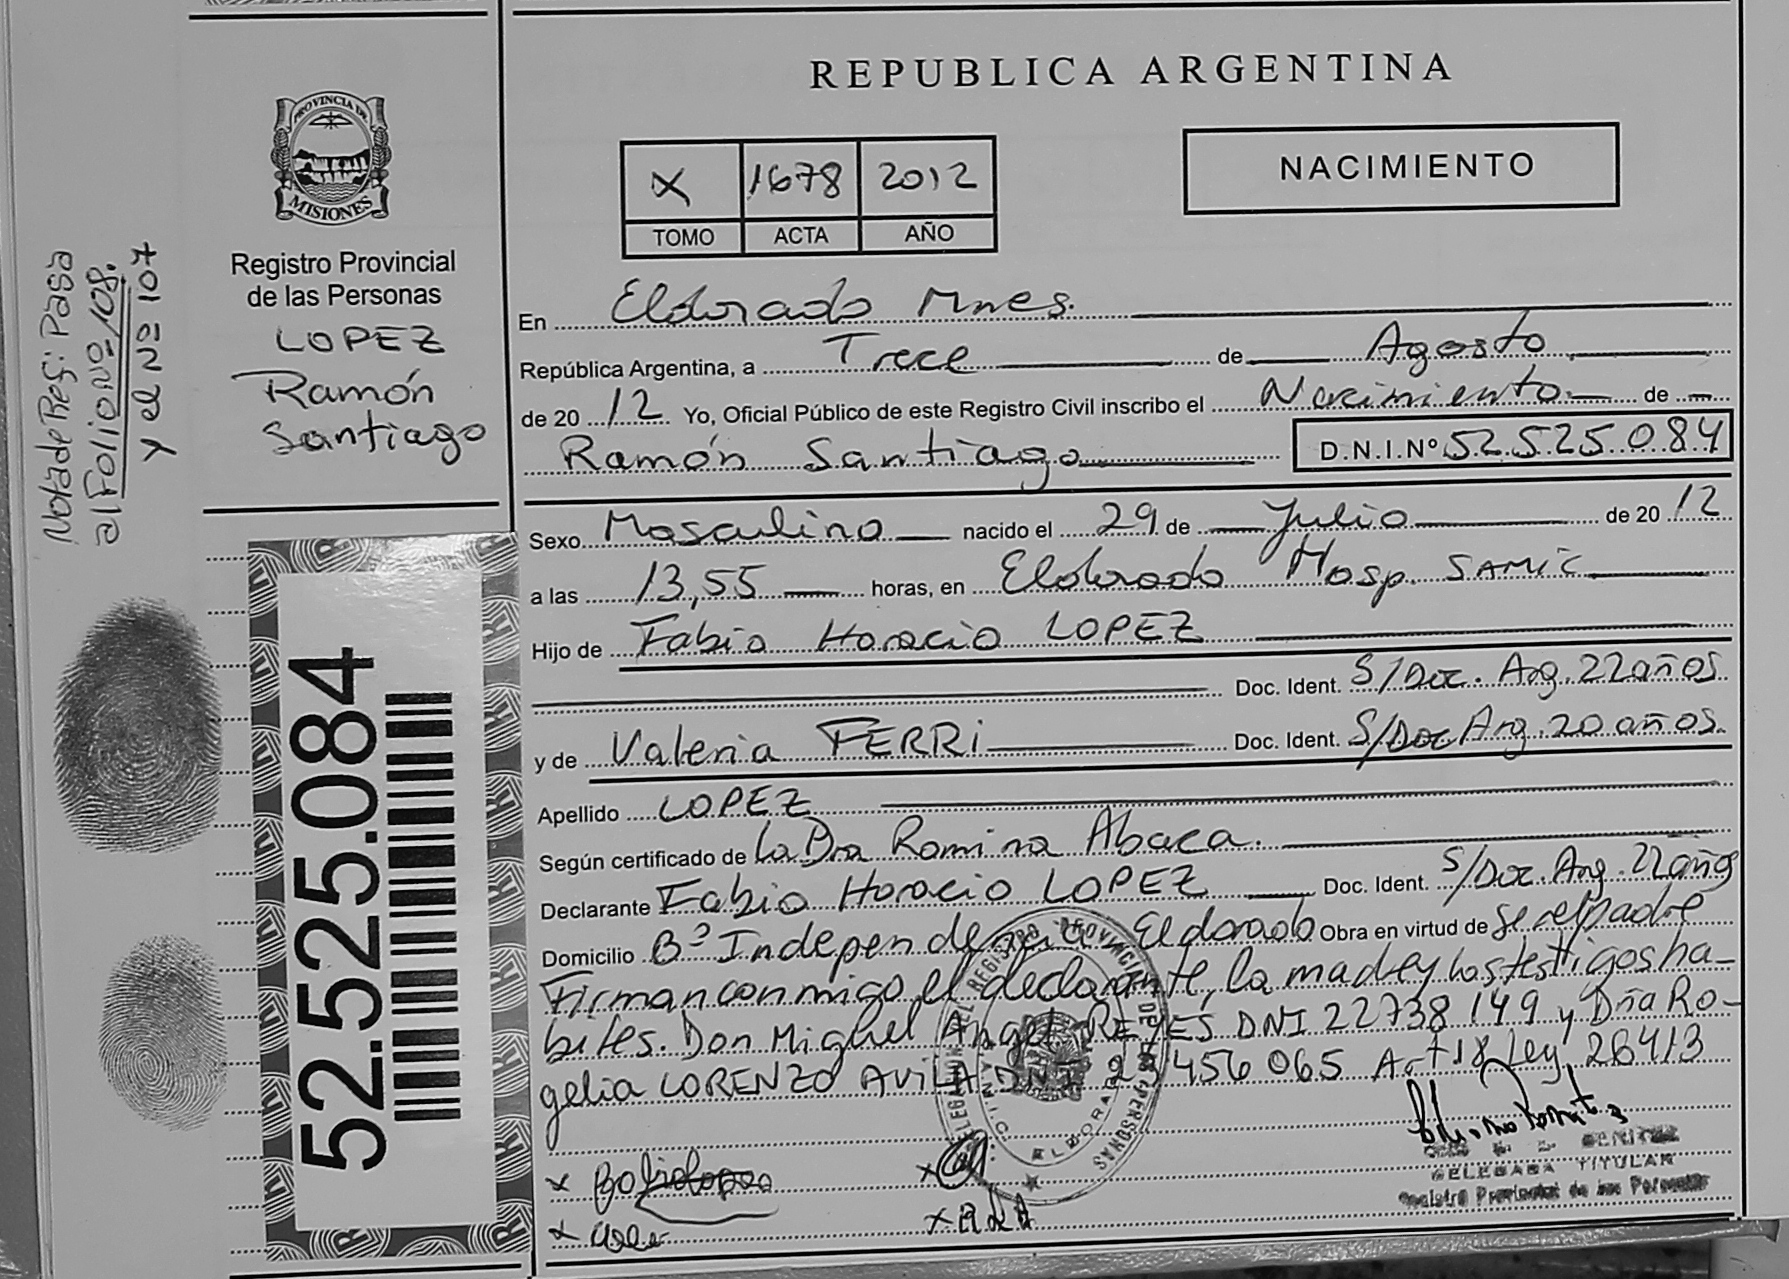 REPUBLICA ARGENTINA
PROVINCIA DE
MISIONES
Registro Provincial
de las Personas
LOPEZ
Ramón
Santiago
Nota de Ref: Pasa
al Folio Nº 108.
y el Nº 107
X 1678 2012
TOMO ACTA AÑO
NACIMIENTO
En Eldorado Mnes.
República Argentina, a Trece de Agosto
de 2012 Yo, Oficial Público de este Registro Civil inscribo el Nacimiento de
Ramón Santiago D.N.I.Nº 52.525.084
Sexo Masculino nacido el 29 de Julio de 2012
a las 13,55 horas, en Eldorado Hosp. SAMIC
Hijo de Fabio Horacio LOPEZ
Doc. Ident. S/Doc. Arg. 22 años
y de Valeria FERRi Doc. Ident. S/Doc Arg. 20 años.
Apellido LOPEZ
Según certificado de La Dra Romina Abaca.
Declarante Fabio Horacio LOPEZ Doc. Ident. S/Doc. Arg. 22 años
Domicilio Bº Independencia Eldorado Obra en virtud de ser el padre
Firman conmigo, el declarante, la madre y los testigos há-
biles. Don Miguel Angel REYES DNI 22738149 y Dña Ro-
gelia LORENZO AVILA DNI 456 065 Art 18 Ley 26413
52.525.084
BENITEZ
DELEGADA TITULAR
Registro Provincial de las Personas